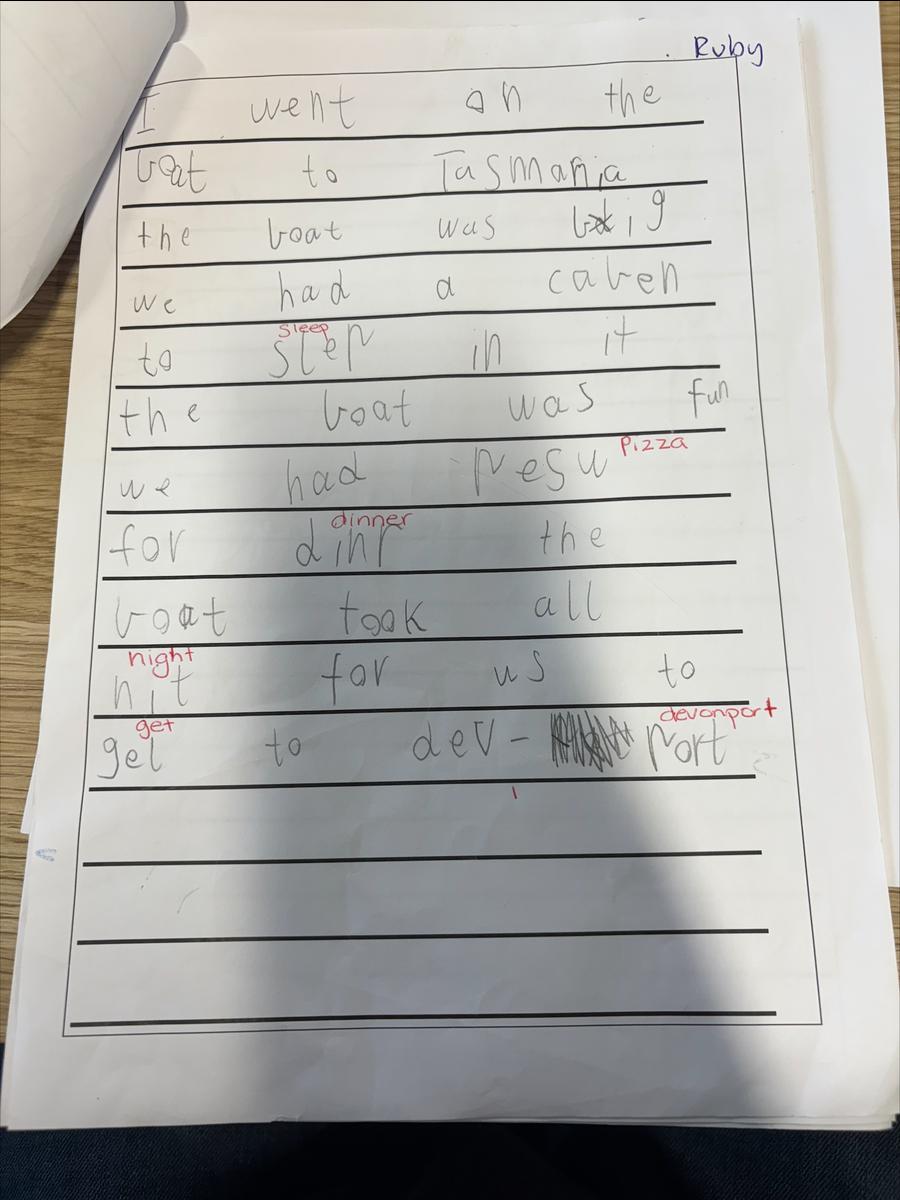 Ruby
I went on the
boat to Tasmania
the boat was big
we had a caben
sleep
to slep in it
the boat was fun
pizza
we had pesu
dinner
for dinr the
boat took all
night
nit for us to
get devonport
get to dev- port